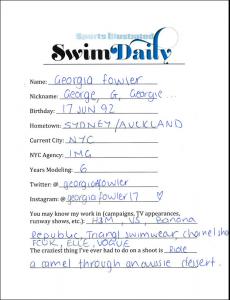 Sports Illustrated
SwimDaily
Name: Georgia Fowler
Nickname: George, G, Georgie...
Birthday: 17 JUN 92
Hometown: SYDNEY/AUCKLAND
Current City: NYC
NYC Agency: IMG
Years Modeling: 6
Twitter: @ georgiafowler
Instagram: @ georgiafowler17
You may know my work in (campaigns, TV appearances,
runway shows, etc.): H&M, VS, Banana
Republic, Triangl swimwear, chanel show
FCUK, ELLE, VOGUE
The craziest thing I've ever had to do on a shoot is Ride
a camel through an aussie dessert.